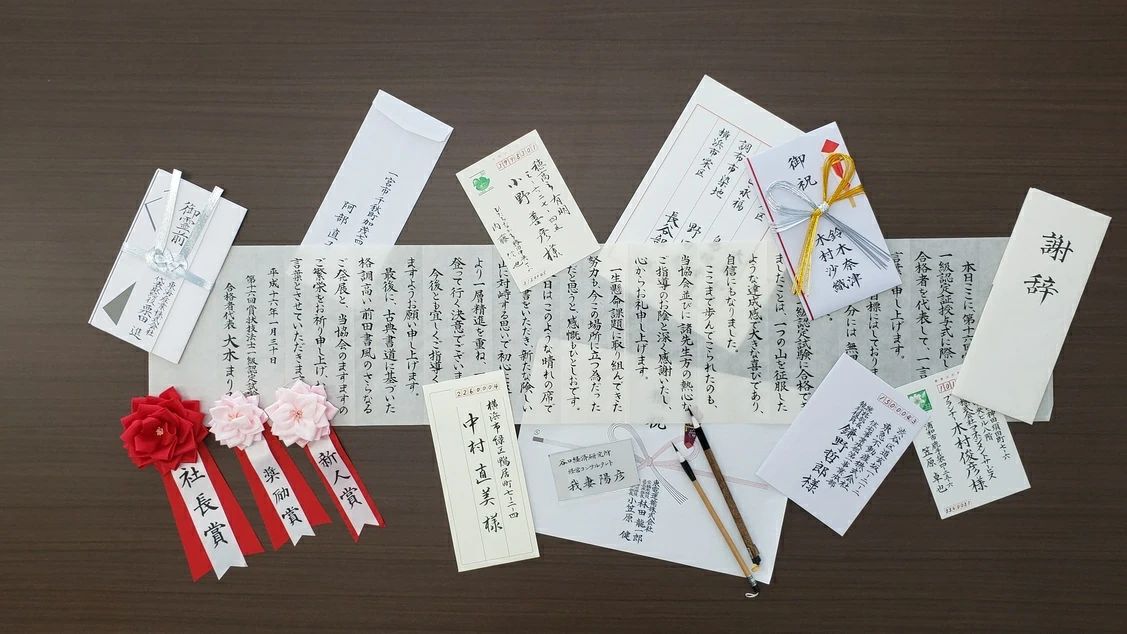 御霊前
一宮市千秋町加茂七四
阿部直
穂高市有明
小野喜彦様
調布市染地
横浜市栄区
御祝
鈴木奈津
木村沙織
謝辞
本日ここに第十六
一級認定授与式に際し
合格者を代表して、一言
言葉申し上げます。
目標にはしており
分には無
級認定試験に合格で
ましたことは、一つの山を征服した
ような達成感で大きな喜びであり、
自信にもなりました。
ここまで歩んでこられたのも、
当協会並びに諸先生方の熱心な
ご指導のお陰と深く感謝いたし、
心からお礼申し上げます。
一生懸命課題に取り組んできた
努力も、今この場所に立つ為だった
だと思うと、感慨ひとしおです。
日はこのような晴れの席で
書をいただき、新たな険しい
に対峙する思いで初心に
より一層精進を重ね、
登って行く決意でございま
今後とも宜しくご指導く
ますようお願い申し上げます。
最後に、古典書道に基づいた
格調高い前田書風のさらなる
ご発展と、当協会のますますの
ご繁栄をお祈り申し上げ、
言葉とさせていただきます
平成十六年一月三十日
第十六回技法一級認定試
合格者代表 大木まり
社長賞
奨励賞
新人賞
2260004
横浜市緑区鴨居町七-三-四
中村直美様
谷口経済研究所
経営コンサルタント
我妻陽彦
祝
東電運輸株式会社
林田龍一郎
小笠原健
1500043
渋谷区道玄坂一-二-二
東急不動産株式会社
鎌野哲郎様
神田須田町七-六
ビル八階
木村俊彦様
笠原卓也